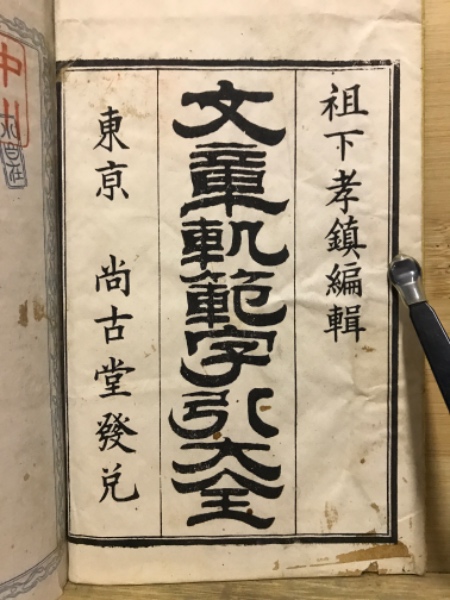 祖下孝鎮編輯
文章軌範字引大全
東京 尚古堂發兌